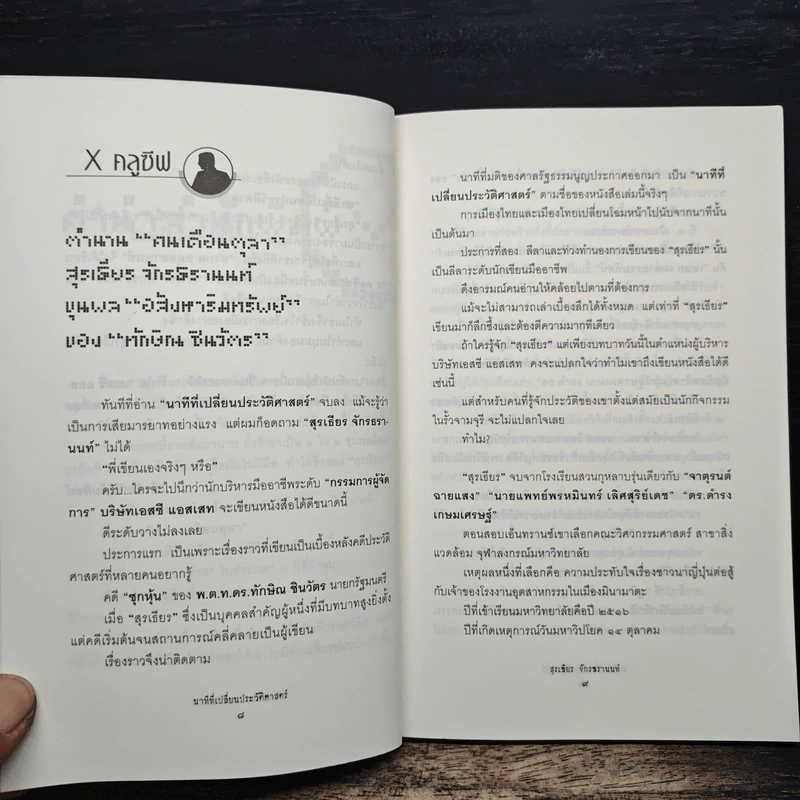 X คลูซีฟ
ตำนาน “คนเดือนตุลา”
สุรเธียร จักรธรานนท์
ขุนพล “อสังหาริมทรัพย์”
ของ “ทักษิณ ชินวัตร”
ทันทีที่อ่าน “นาทีที่เปลี่ยนประวัติศาสตร์” จบลง แม้จะรู้ว่า
เป็นการเสียมารยาทอย่างแรง แต่ผมก็อดถาม “สุรเธียร จักรธรา-
นนท์” ไม่ได้
“พี่เขียนเองจริงๆ หรือ”
ครับ...ใครจะไปนึกว่านักบริหารมืออาชีพระดับ “กรรมการผู้จัด
การ” บริษัทเอสซี แอสเสท จะเขียนหนังสือได้ดีขนาดนี้
ดีระดับวางไม่ลงเลย
ประการแรก เป็นเพราะเรื่องราวที่เขียนเป็นเบื้องหลังคดีประวัติ
ศาสตร์ที่หลายคนอยากรู้
คดี “ซุกหุ้น” ของ พ.ต.ท.ดร.ทักษิณ ชินวัตร นายกรัฐมนตรี
เมื่อ “สุรเธียร” ซึ่งเป็นบุคคลสำคัญผู้หนึ่งที่มีบทบาทสูงยิ่งตั้ง
แต่คดีเริ่มต้นจนสถานการณ์คลี่คลายเป็นผู้เขียน
เรื่องราวจึงน่าติดตาม
นาทีที่เปลี่ยนประวัติศาสตร์
๘
นาทีที่มติของศาลรัฐธรรมนูญประกาศออกมา เป็น “นาทีที่
เปลี่ยนประวัติศาสตร์” ตามชื่อของหนังสือเล่มนี้จริงๆ
การเมืองไทยและเมืองไทยเปลี่ยนโฉมหน้าไปนับจากนาทีนั้น
เป็นต้นมา
ประการที่สอง ลีลาและท่วงทำนองการเขียนของ “สุรเธียร” นั้น
เป็นลีลาระดับนักเขียนมืออาชีพ
ดึงอารมณ์คนอ่านให้คล้อยไปตามที่ต้องการ
แม้จะไม่สามารถเล่าเบื้องลึกได้ทั้งหมด แต่เท่าที่ “สุรเธียร”
เขียนมาก็ลึกซึ้งและต้องตีความมากทีเดียว
ถ้าใครรู้จัก “สุรเธียร” แต่เพียงบทบาทวันนี้ในตำแหน่งผู้บริหาร
บริษัทเอสซี แอสเสท คงจะแปลกใจว่าทำไมเขาถึงเขียนหนังสือได้ดี
เช่นนี้
แต่สำหรับคนที่รู้จักประวัติของเขาตั้งแต่สมัยเป็นนักกิจกรรม
ในรั้วจามจุรี จะไม่แปลกใจเลย
ทำไม?
“สุรเธียร” จบจากโรงเรียนสวนกุหลาบรุ่นเดียวกับ “จาตุรนต์
ฉายแสง” “นายแพทย์พรหมินทร์ เลิศสุริย์เดช” “ดร.ดำรง
เกษมเศรษฐ์”
ตอนสอบเอ็นทรานซ์เขาเลือกคณะวิศวกรรมศาสตร์ สาขาสิ่ง
แวดล้อม จุฬาลงกรณ์มหาวิทยาลัย
เหตุผลหนึ่งที่เลือกคือ ความประทับใจเรื่องชาวนาญี่ปุ่นต่อสู้
กับเจ้าของโรงงานอุตสาหกรรมในเมืองมินามาตะ
ปีที่เข้าเรียนมหาวิทยาลัยคือปี ๒๕๑๖
ปีที่เกิดเหตุการณ์วันมหาวิปโยค ๑๔ ตุลาคม
สุรเธียร จักรธรานนท์
๙